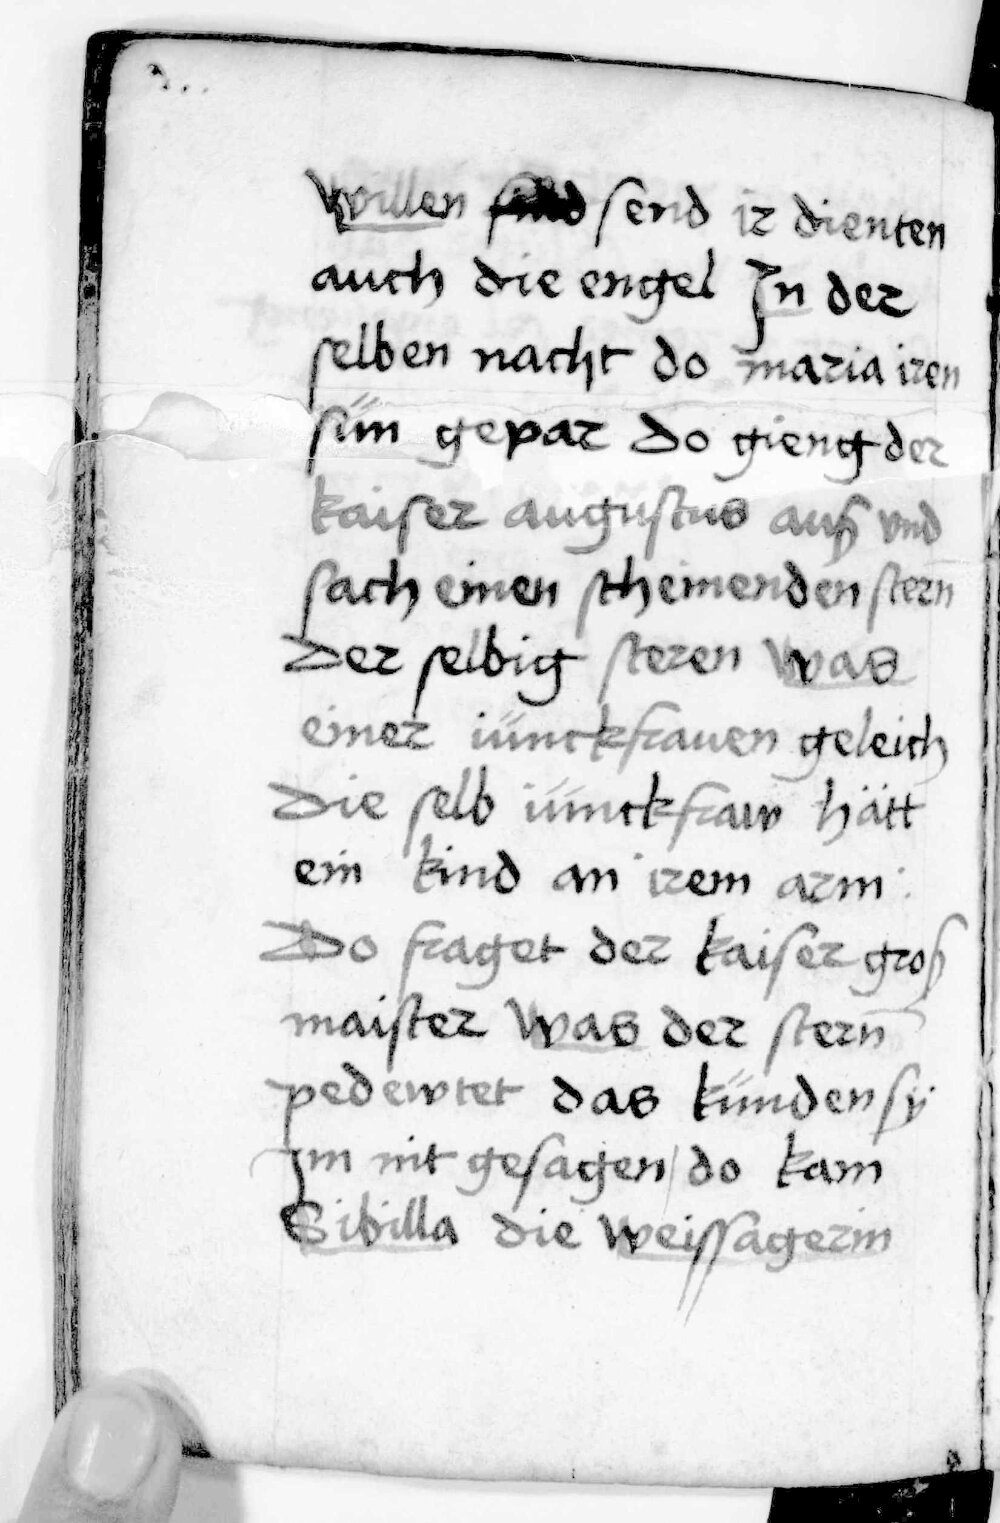 Willen send ir dienten
auch die engel In der
selben nacht do maria iren
sün gepar Do gieng der
kaiser augustus auß vnd
sach einen scheinenden stern̄
Der selbig steren was
einer iünckfrauen geleich
Die selb iünckfraw hätt
ein kind an irem arm
Do fraget der kaiser groß
maister was der stern̄
pedewtet das künden sÿ
Im nit gesagen / do kam
Sibilla die weissagerin